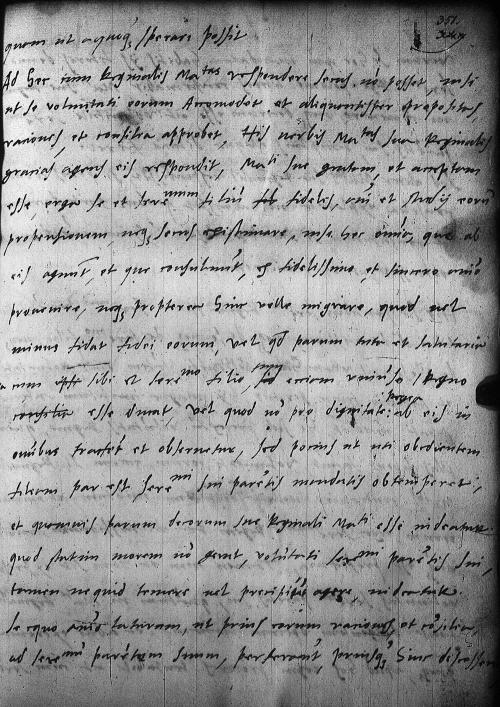 351.
quam ut aequo sperari possit
Ad hec cum Reginalis Matas respondere secus nõ posset, nisi
ut se voluntati eorum Accomodet et aliquantisper propositas
rationes, et consilia approbet, His verbis Matas sua Reginalis
gratias agens eis respondit, Mati sue gratum, et acceptum
esse, erga se et serenmum filiũ fidelis, aũi et studij eorũ
propensionem, neq3 secus existimare, nisi hec omia, que ab
eis agunt, et que consulunt, ex fidelissimo et sincero aũio
provenire, neq3 propterea hinc velle migrare, quod vel
minus fidat fidei eorum, vel qd parum tuta et salutaria
cum sibi et serenmo filio, eciam universo Regno
consilia esse ducat, vel quod nõ pro dignitate ab eis in
omibus tractet et observetur, sed pocius ut uti obedientem
filiam par est serenmi sui parẽtis mandatis obtemperet;
et quamvis parum decorum sue Reginali Mati esse videatur
quod statim morem nõ gerat, volũtati sermi parẽtis sui,
tamen ne quid temere vel precipitãt agere, videatur.
Se equo aĩo laturam, ut prius eorum rationes, et cõsilia,
ad serenmũ parẽtem suum, perferant, priusq3 hinc discesser